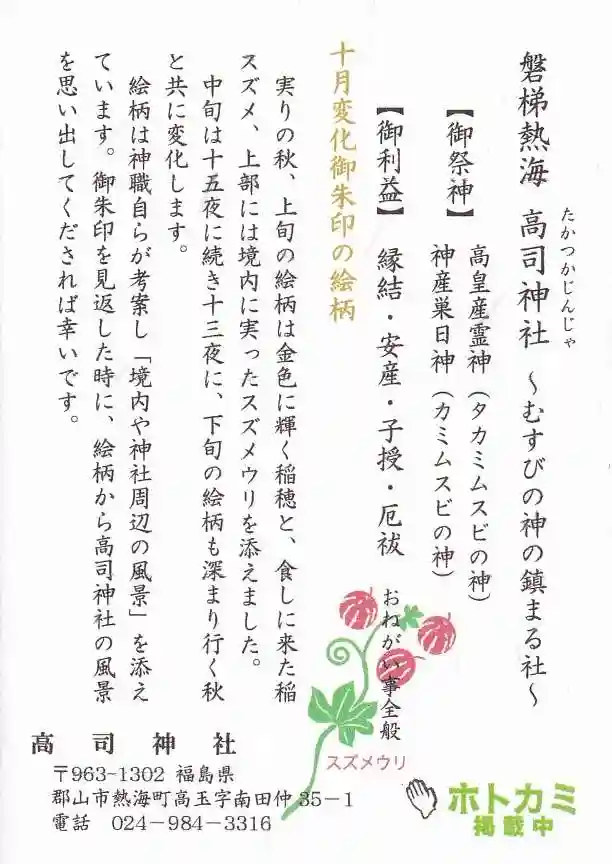 磐梯熱海 高司神社 〜むすびの神の鎮まる社〜
たかつかじんじゃ
【御祭神】 高皇産霊神(タカミムスビの神)
神産巣日神(カミムスビの神)
【御利益】 縁結・安産・子授・厄祓
おねがい事全般
十月変化御朱印の絵柄
実りの秋、上旬の絵柄は金色に輝く稲穂と、食しに来た稲
スズメ、上部には境内に実ったスズメウリを添えました。
中旬は十五夜に続き十三夜に、下旬の絵柄も深まり行く秋
と共に変化します。
絵柄は神職自らが考案し「境内や神社周辺の風景」を添え
ています。御朱印を見返した時に、絵柄から高司神社の風景
を思い出してくだされば幸いです。
スズメウリ
高司神社
〒963-1302 福島県
郡山市熱海町高玉字南田仲35-1
電話 024-984-3316
ホトカミ
掲載中